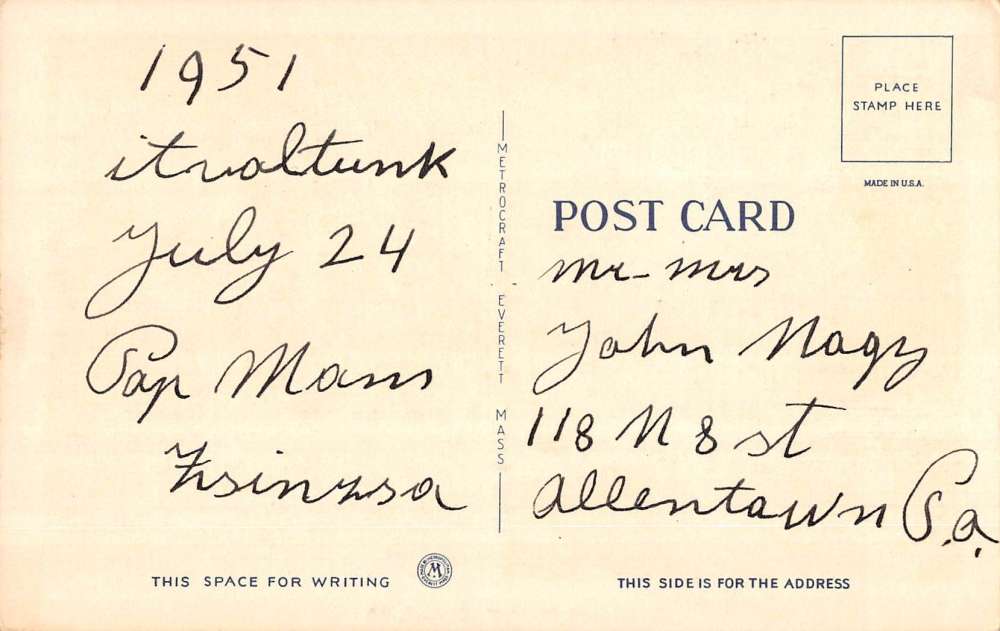 1951
itvoltunk
July 24
Pap Mans
Zsinzsa
PLACE
STAMP HERE
MADE IN U.S.A.
METROCRAFT EVERETT MASS
POST CARD
Mr - Mrs
John Nagy
118 N 8 st
Allentown Pa.
THIS SPACE FOR WRITING
M
THIS SIDE IS FOR THE ADDRESS